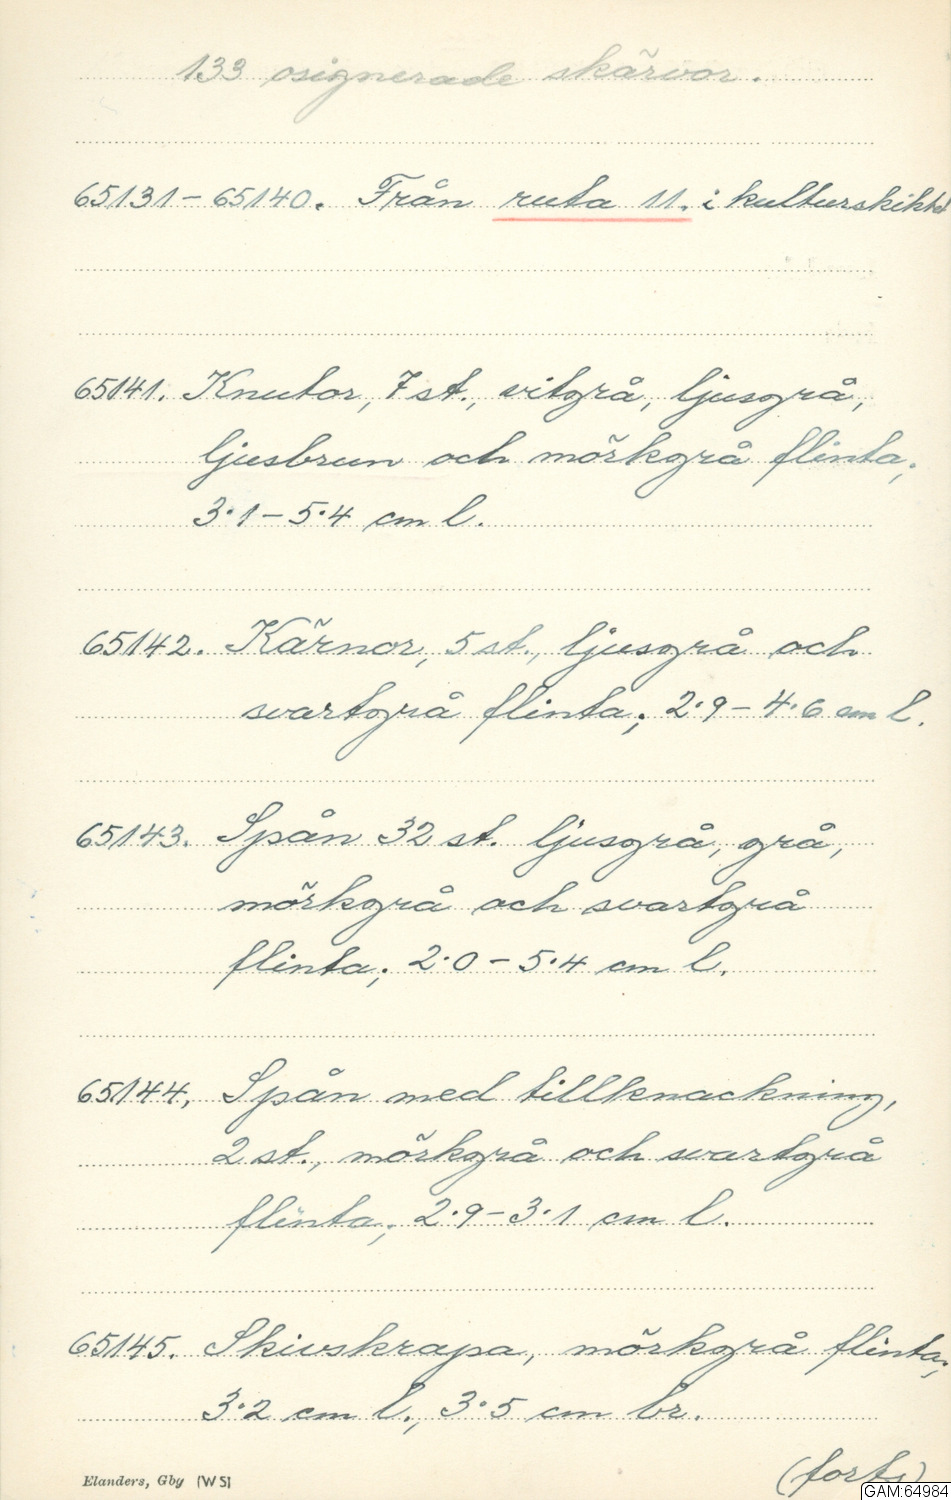 133 osignerade skärvor.
65131 – 65140. Från ruta 11. i kulturskiktet
65141. Knutor, 7 st., vitgrå, ljusgrå,
ljusbrun och mörkgrå flinta;
3·1 – 5·4 cm l.
65142. Kärnor, 5 st., ljusgrå och
svartgrå flinta; 2·9 – 4·6 cm l.
65143. Spån 32 st. ljusgrå, grå,
mörkgrå och svartgrå
flinta; 2·0 – 5·4 cm l.
65144, Spån med tillknackning,
2 st., mörkgrå och svartgrå
flinta; 2·9 – 3·1 cm l.
65145. Skivskrapa, mörkgrå flinta;
3·2 cm l., 3·5 cm br.
(forts)
Elanders, Gbg (WS)
GAM:64984